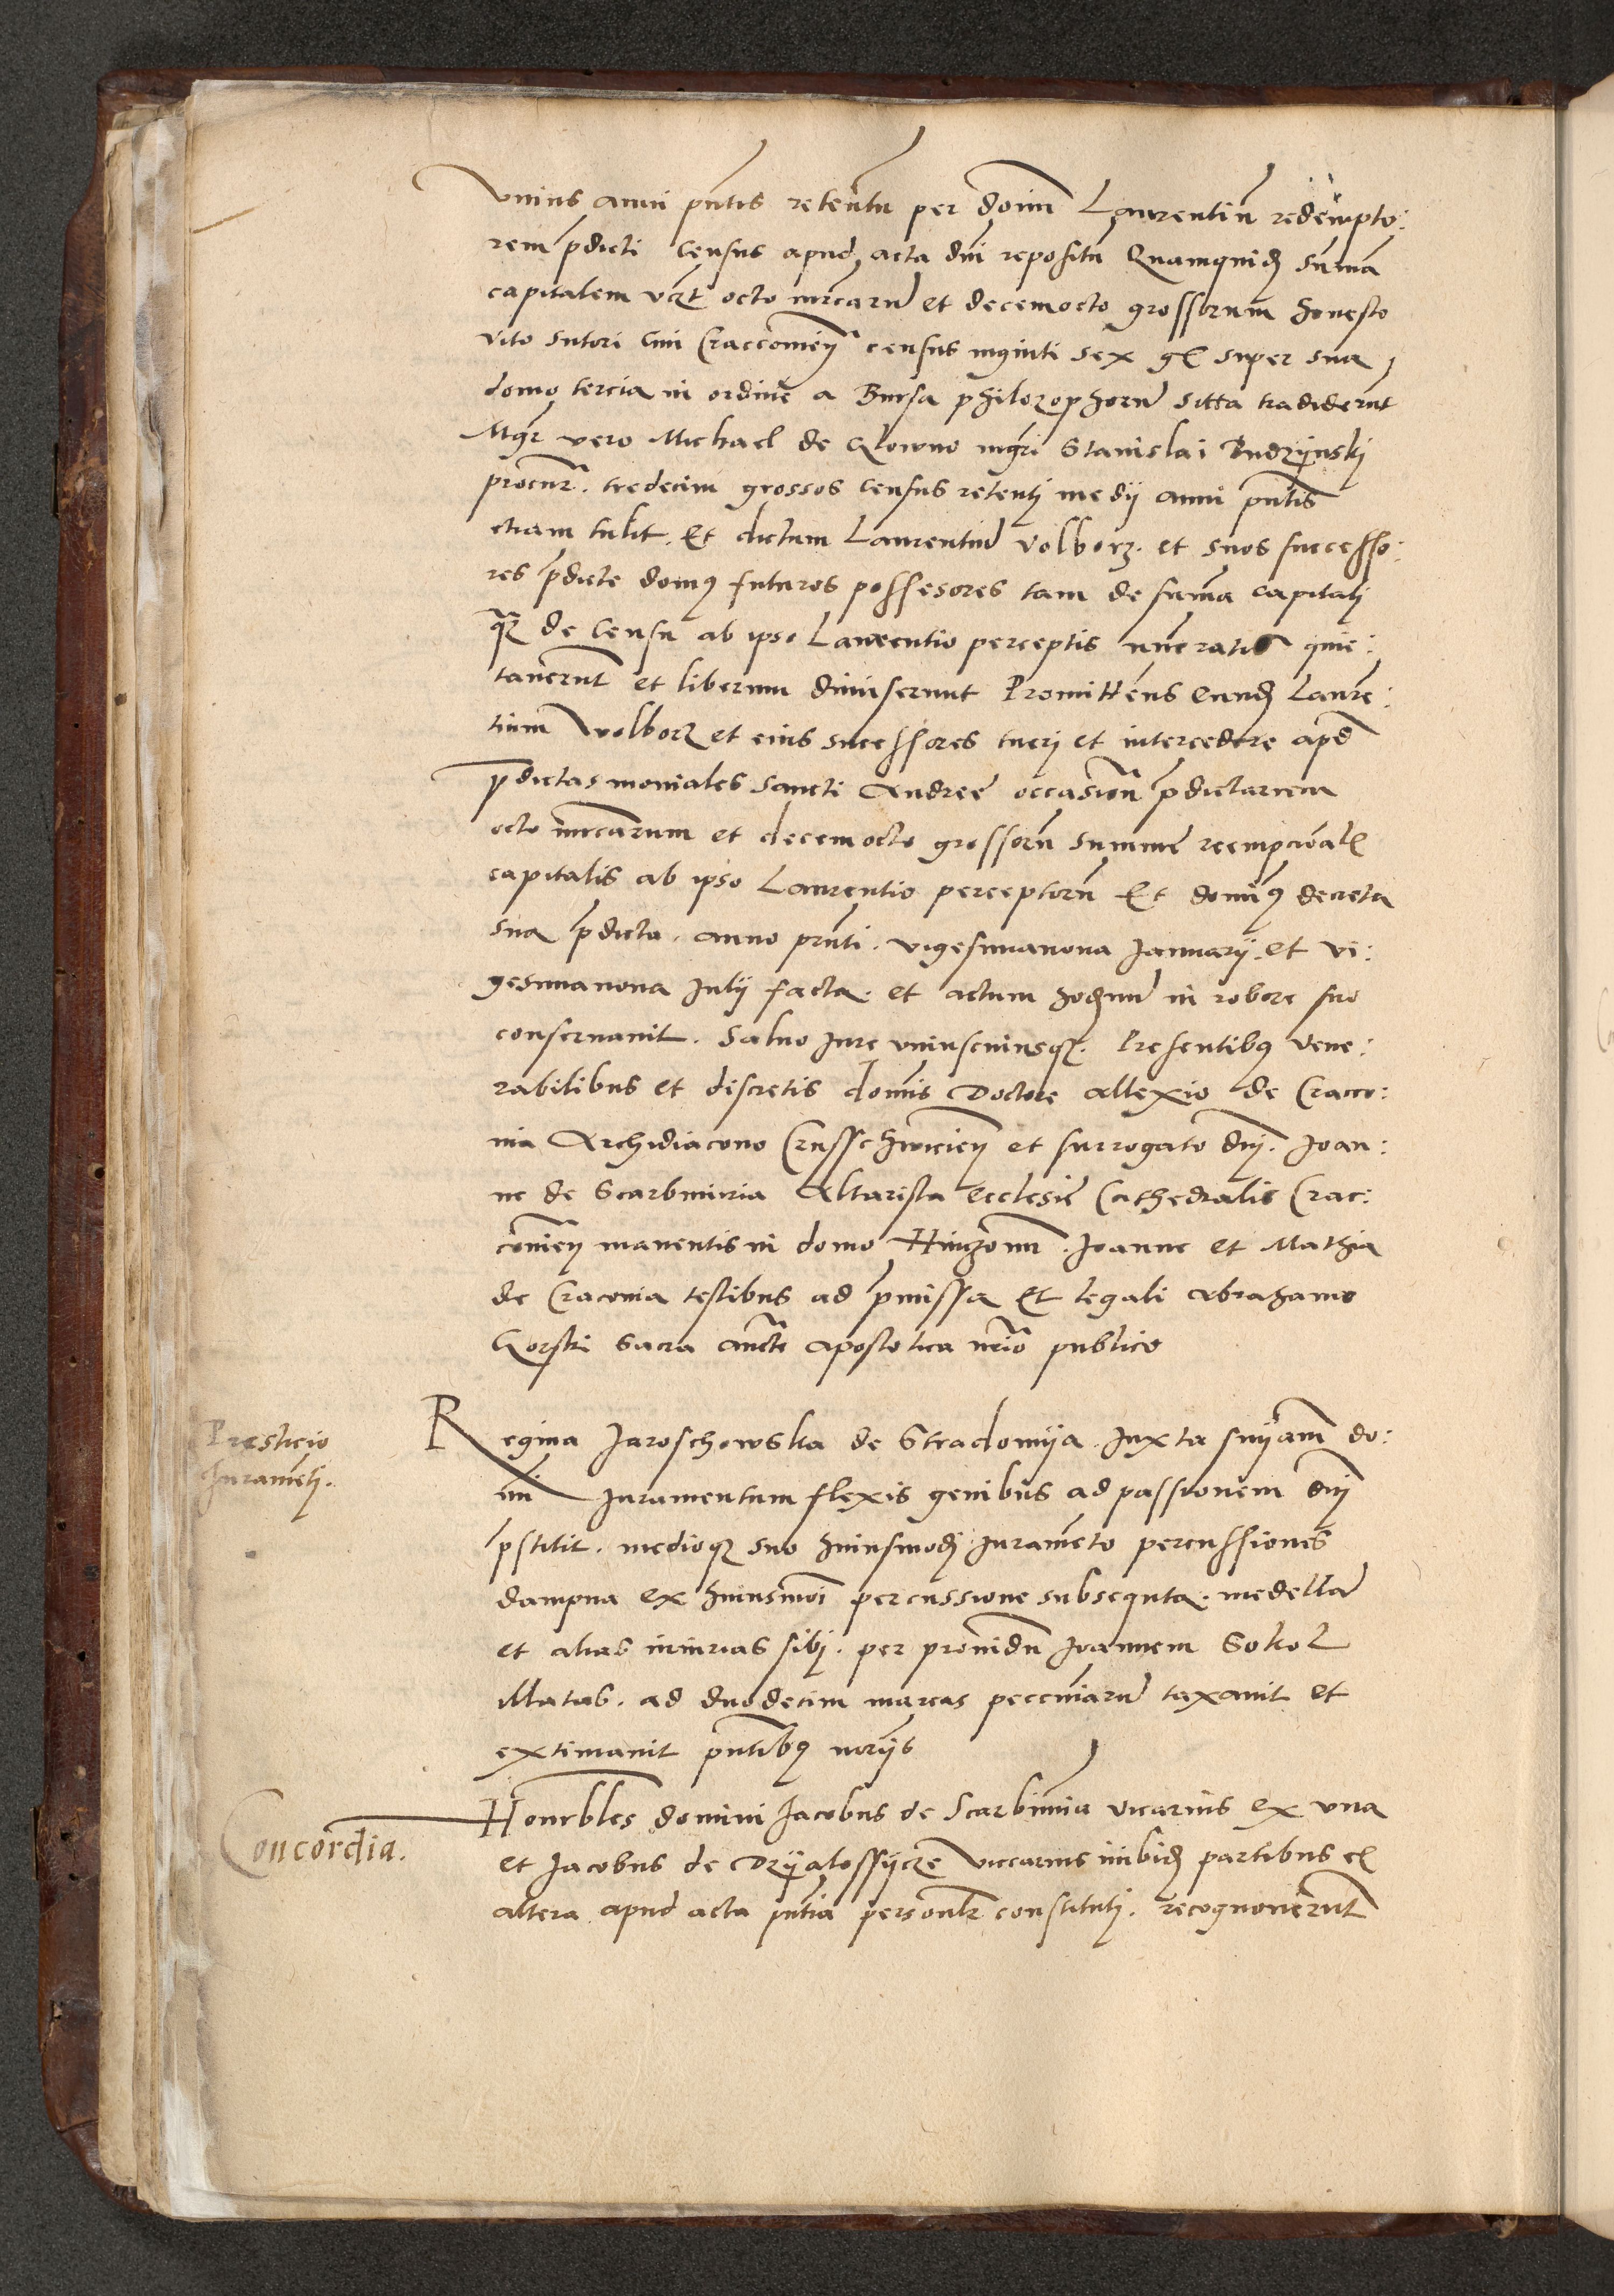 vnius anni pntis retentu per donu Laurentiu redempto:
rem pdicti Census apud acta dni repositu Quamquid summa
capitalem vczt octo mrcaru et decemocto grossorum honesto
vito sutori Ciui Cracconien census viginti sex gl super sua
domo tercia in ordine a Bursa philozophoru sitta tradiderut
Mgr vero Michael de Clowno mgri Stanislai Budzynskj
procur. tredecim grossos Census retentj medij anni pntis
etiam tulit. Et dictum Laurentiu Volborz. et suos successo:
res pdicte domq futuros possesores tam de summa capitalj
qz de Censu ab ipso Laurentio perceptis quie:
tauerut et liberum dimiserunt Promittens Eunde Laure:
tium Wolborz et eius successores tuerj et intercedere apd
pdictas moniales Sancti Andree occasione pdictarum
octo mrcarum et decemocto grossoru summe reempcionalis
capitalis ab ipso Laurentio perceptoru Et dominq decreta
sua pdicta. anno pnti. vigesimanona Januarij. et vi:
gesimanona Julij facta. et actum hodiernu in robore suo
conseruauit. Saluo Jure vniuscuiusqz. Presentibq Vene:
rabilibus et discretis domis Doctore Allexio de Cracco:
uia Archidiacono Crusschwicien et surrogato dnj. Joan:
ne de Scarbimiria Altarista Ecclesie Cathedralis Crac:
conien manentis in domo Hinczonis. Joanne et Mathia
de Craconia testibus ad pmissa Et legali Abrahamo
Gorski Sacra aucte apostolica nrio publico
Presticio
Jurameti.
Regina Jaroschowska de Stradomija. Juxta sniam do:
ni Juramentum flexis genibus ad passionem dnj
pstitit. medioqz suo huiusmodj Jurameto percussiones
dampna ex huiusmoi percussione subsequta. medella
et alias iniurias sibj. per prouidu Joannem Sokol
illatas. ad duodecim marcas peccuniaru taxauit et
extimauit pntibq norijs
Concordia.
Honrbles domini Jacobus de Scarbimia vicarius ex vna
et Jacobus de Dzyalossycze viccarius inibid partibus ex
altera apud acta pntia personlr constitutj. recognouerut